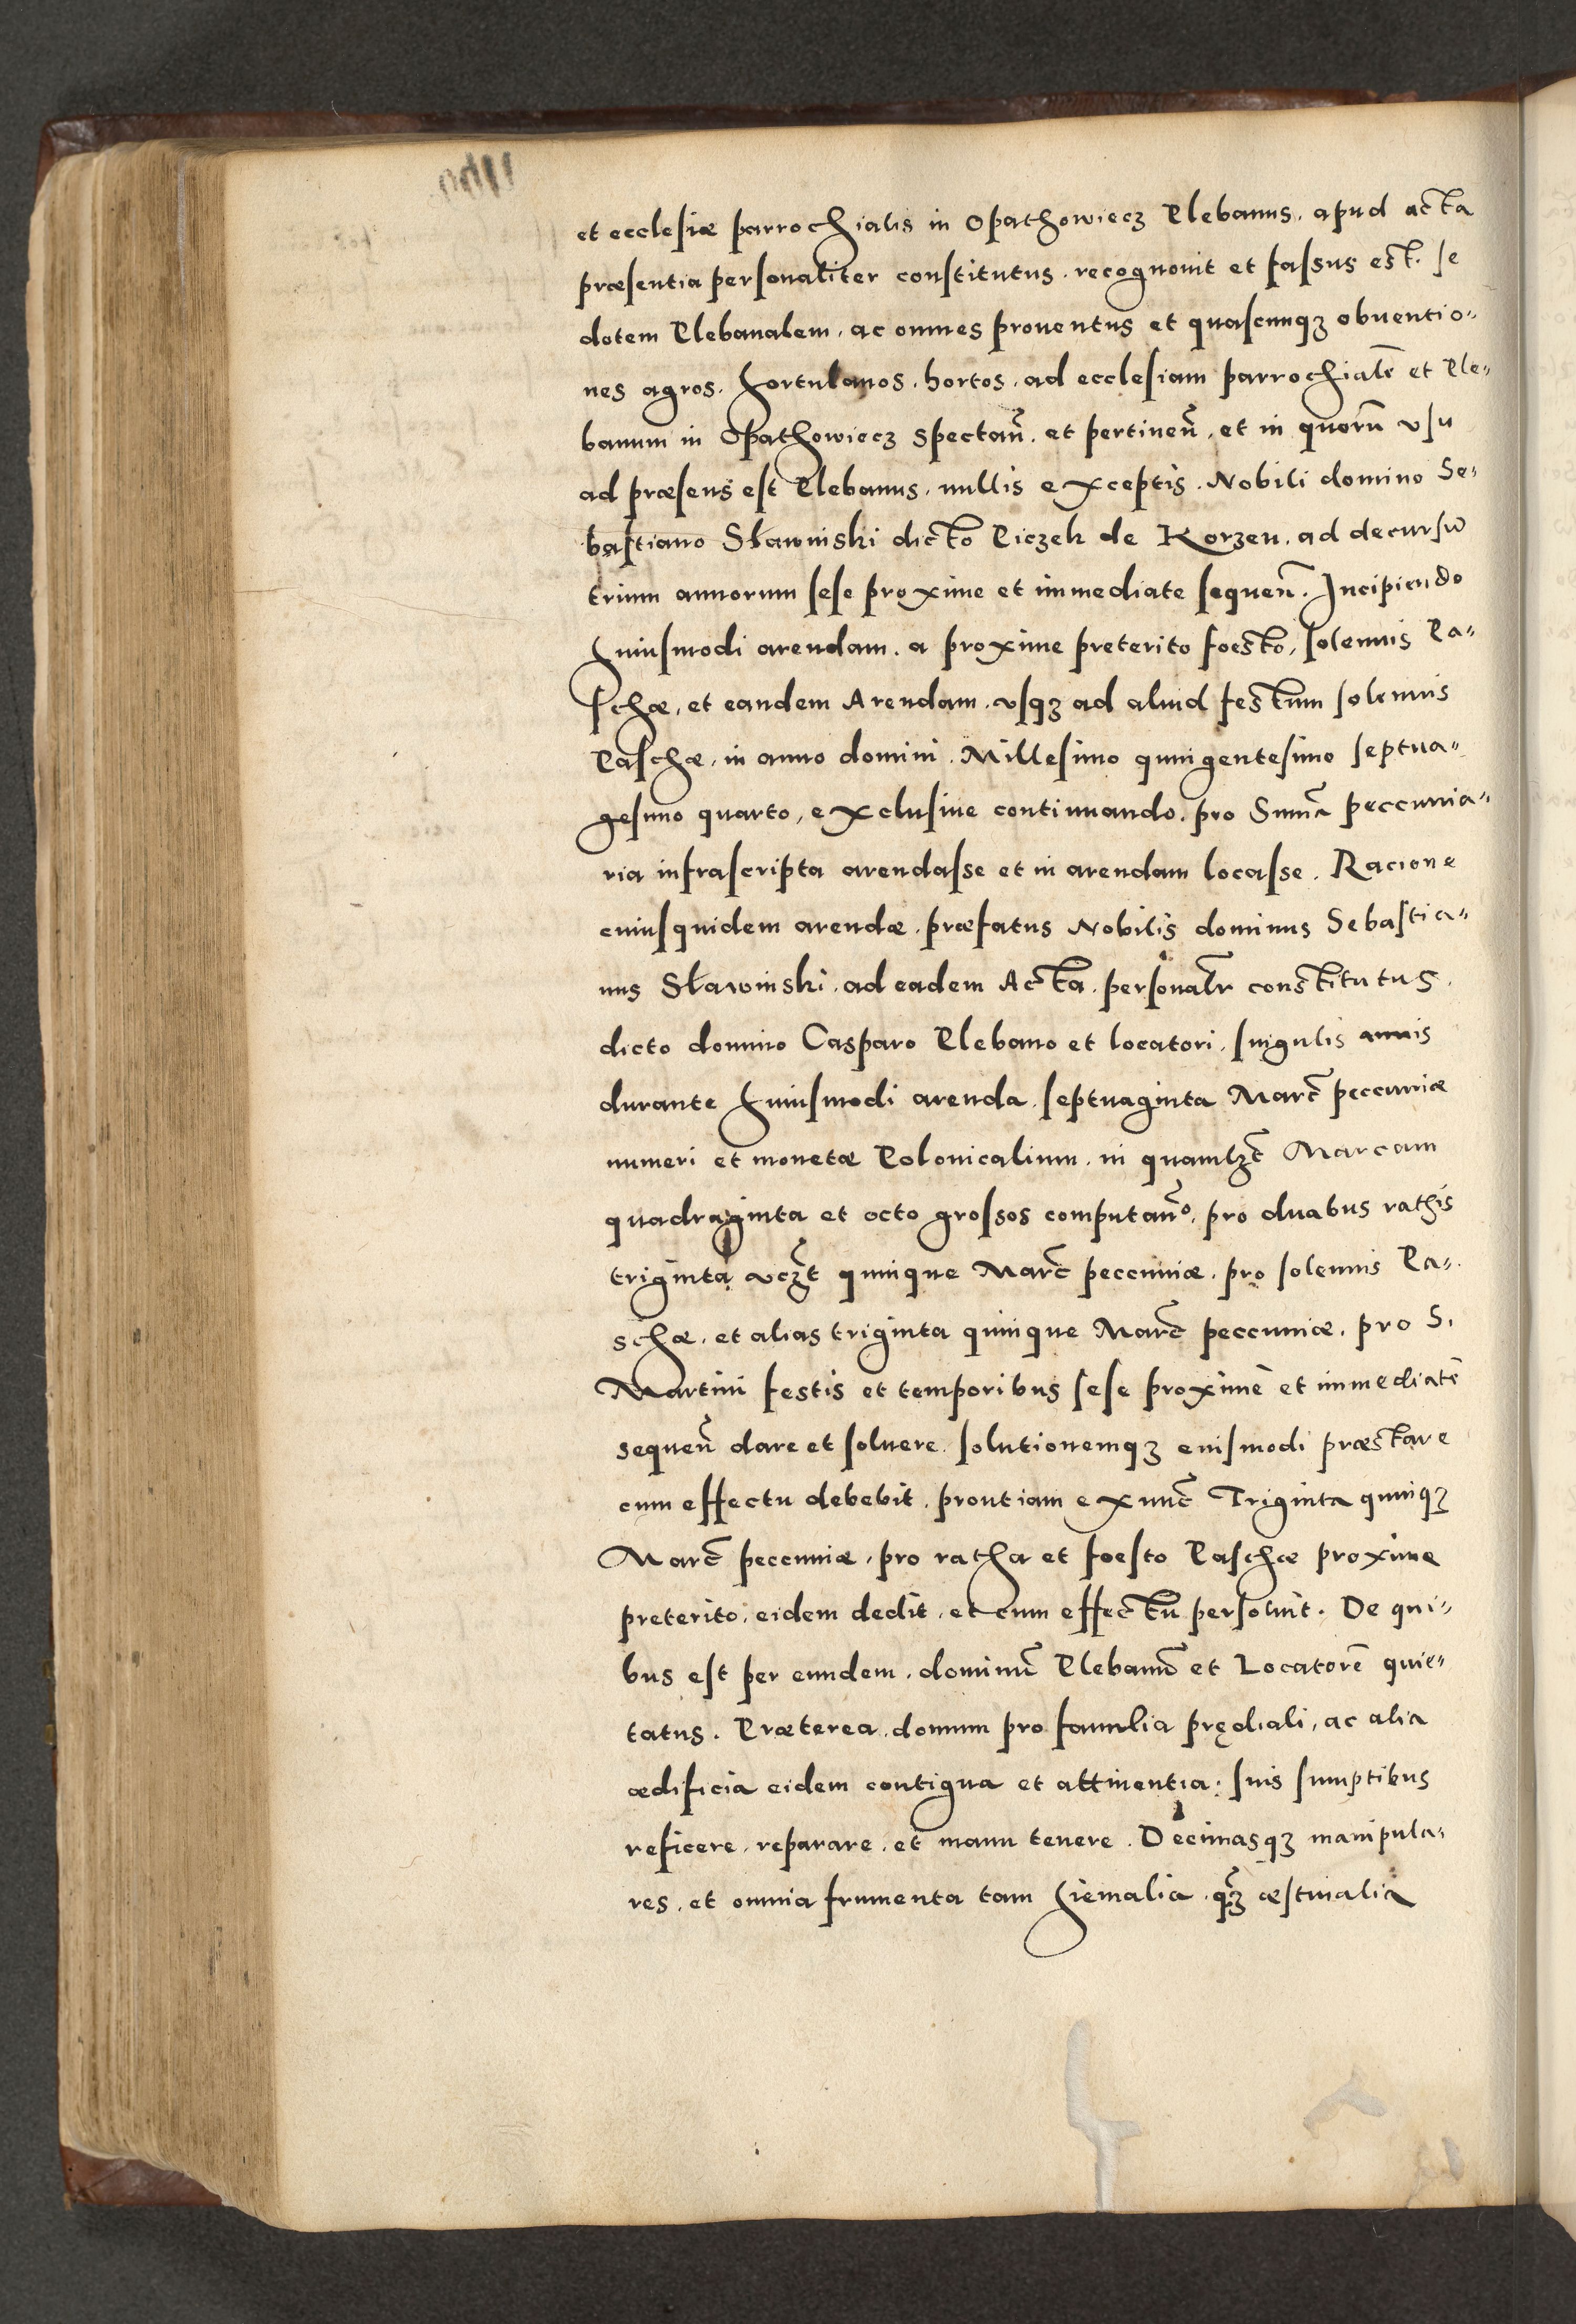 et ecclesiæ parrochialis in Opathowiecz Plebanus, apud acta
præsentia personaliter constitutus, recognouit et fassus est. se
dotem Plebanalem, ac omnes prouentus et quascunqȝ obuentio=
nes agros, hortulanos, hortos, ad ecclesiam parrochialē et Ple=
banum in Opathowiecz spectan̄, et pertinen̄, et in quorū vsu
ad præsens est Plebanus, nullis exceptis. Nobili domino Se=
bastiano Sławinski dicto Piczek de Korzen, ad decursū
trium annorum sese proxime et immediate sequen̄. Incipiendo
huiusmodi arendam, a proxime preterito foesto, solennis Pa=
schæ, et eandem Arendam, vsqȝ ad aliud festum solennis
Paschæ, in anno domini, Millesimo quingentesimo septua=
gesimo quarto, exclusiue continuando, pro Sum̄a peccunia=
ria infrascripta arendasse et in arendam locasse. Racione
cuiusquidem arendæ, præfatus Nobilis dominus Sebastia=
nus Sławinski, ad eadem Acta, personalr̄ constitutus,
dicto domino Casparo Plebano et locatori, singulis annis
durante huiusmodi arenda, septuaginta Marc̄ peccuniæ
numeri et monetæ Polonicalium, in quamlȝt̄ Marcam
quadraginta et octo grossos computan̄o, pro duabus rathis
triginta vcȝt̄ quinque Marc̄ peccuniæ, pro solennis Pa=
schæ, et alias triginta quinque Marc̄ peccuniæ, pro S.
Martini festis et temporibus sese proximè et immediatè
sequen̄ dare et soluere, solutionemqȝ euismodi præstare
cum effectu debebit, proutiam exnunc̄ Triginta quinqȝ
Marc̄ peccuniæ, pro ratha et foesto Paschæ proxime
preterito, eidem dedit, et cum effectu persoluit. De qui=
bus est per eundem, dominū Plebanū et Locatorē quie=
tatus. Præterea, domum pro familia prędiali, ac alia
ædificia eidem contigua et attinentia, suis sumptibus
reficere, reparare, et manu tenere. Decimasqȝ manipula=
res, et omnia frumenta tam hiemalia, qȝ̄ æstiualia